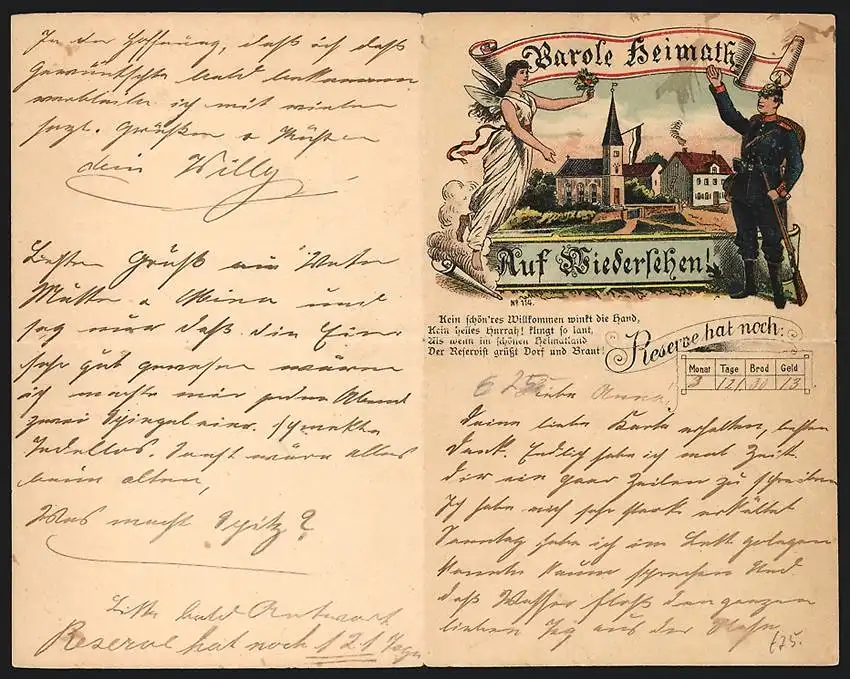 Parole Heimath
Auf Wiedersehen!
No 114.
Kein schön'res Willkommen winkt die Hand,
Kein helles Hurrah! klingt so laut,
Als wenn im schönen Heimatland
Der Reservist grüßt Dorf und Braut!
Reserve hat noch:
Monat Tage Brod Geld
3 121 30 13
Liebe Anna!
Deine liebe Karte erhalten, besten
Dank. Endlich habe ich mal Zeit
dir ein paar Zeilen zu schreiben
Ich habe mich sehr stark erkältet
Sonntag habe ich im Bett gelegen
konnte kaum sprechen und
daß Wasser floß den ganzen
lieben Tag aus der Nase
£75.
In der Hoffnung, daß ich daß
Gewünschte bald bekommen
verbleibe ich mit vielen
herzl. Grüßen u Küssen
dein Willy
Besten Gruß an Vater
Mutter u Mina und
sag nur daß die Eier
sehr gut gewesen wären
ich machte mir jeden Abend
zwei Spiegeleier. schmeckte
Tadellos. Sonst wäre alles
beim alten,
Was macht Spitz?
Bitte bald Antwort
Reserve hat noch 121 Tage